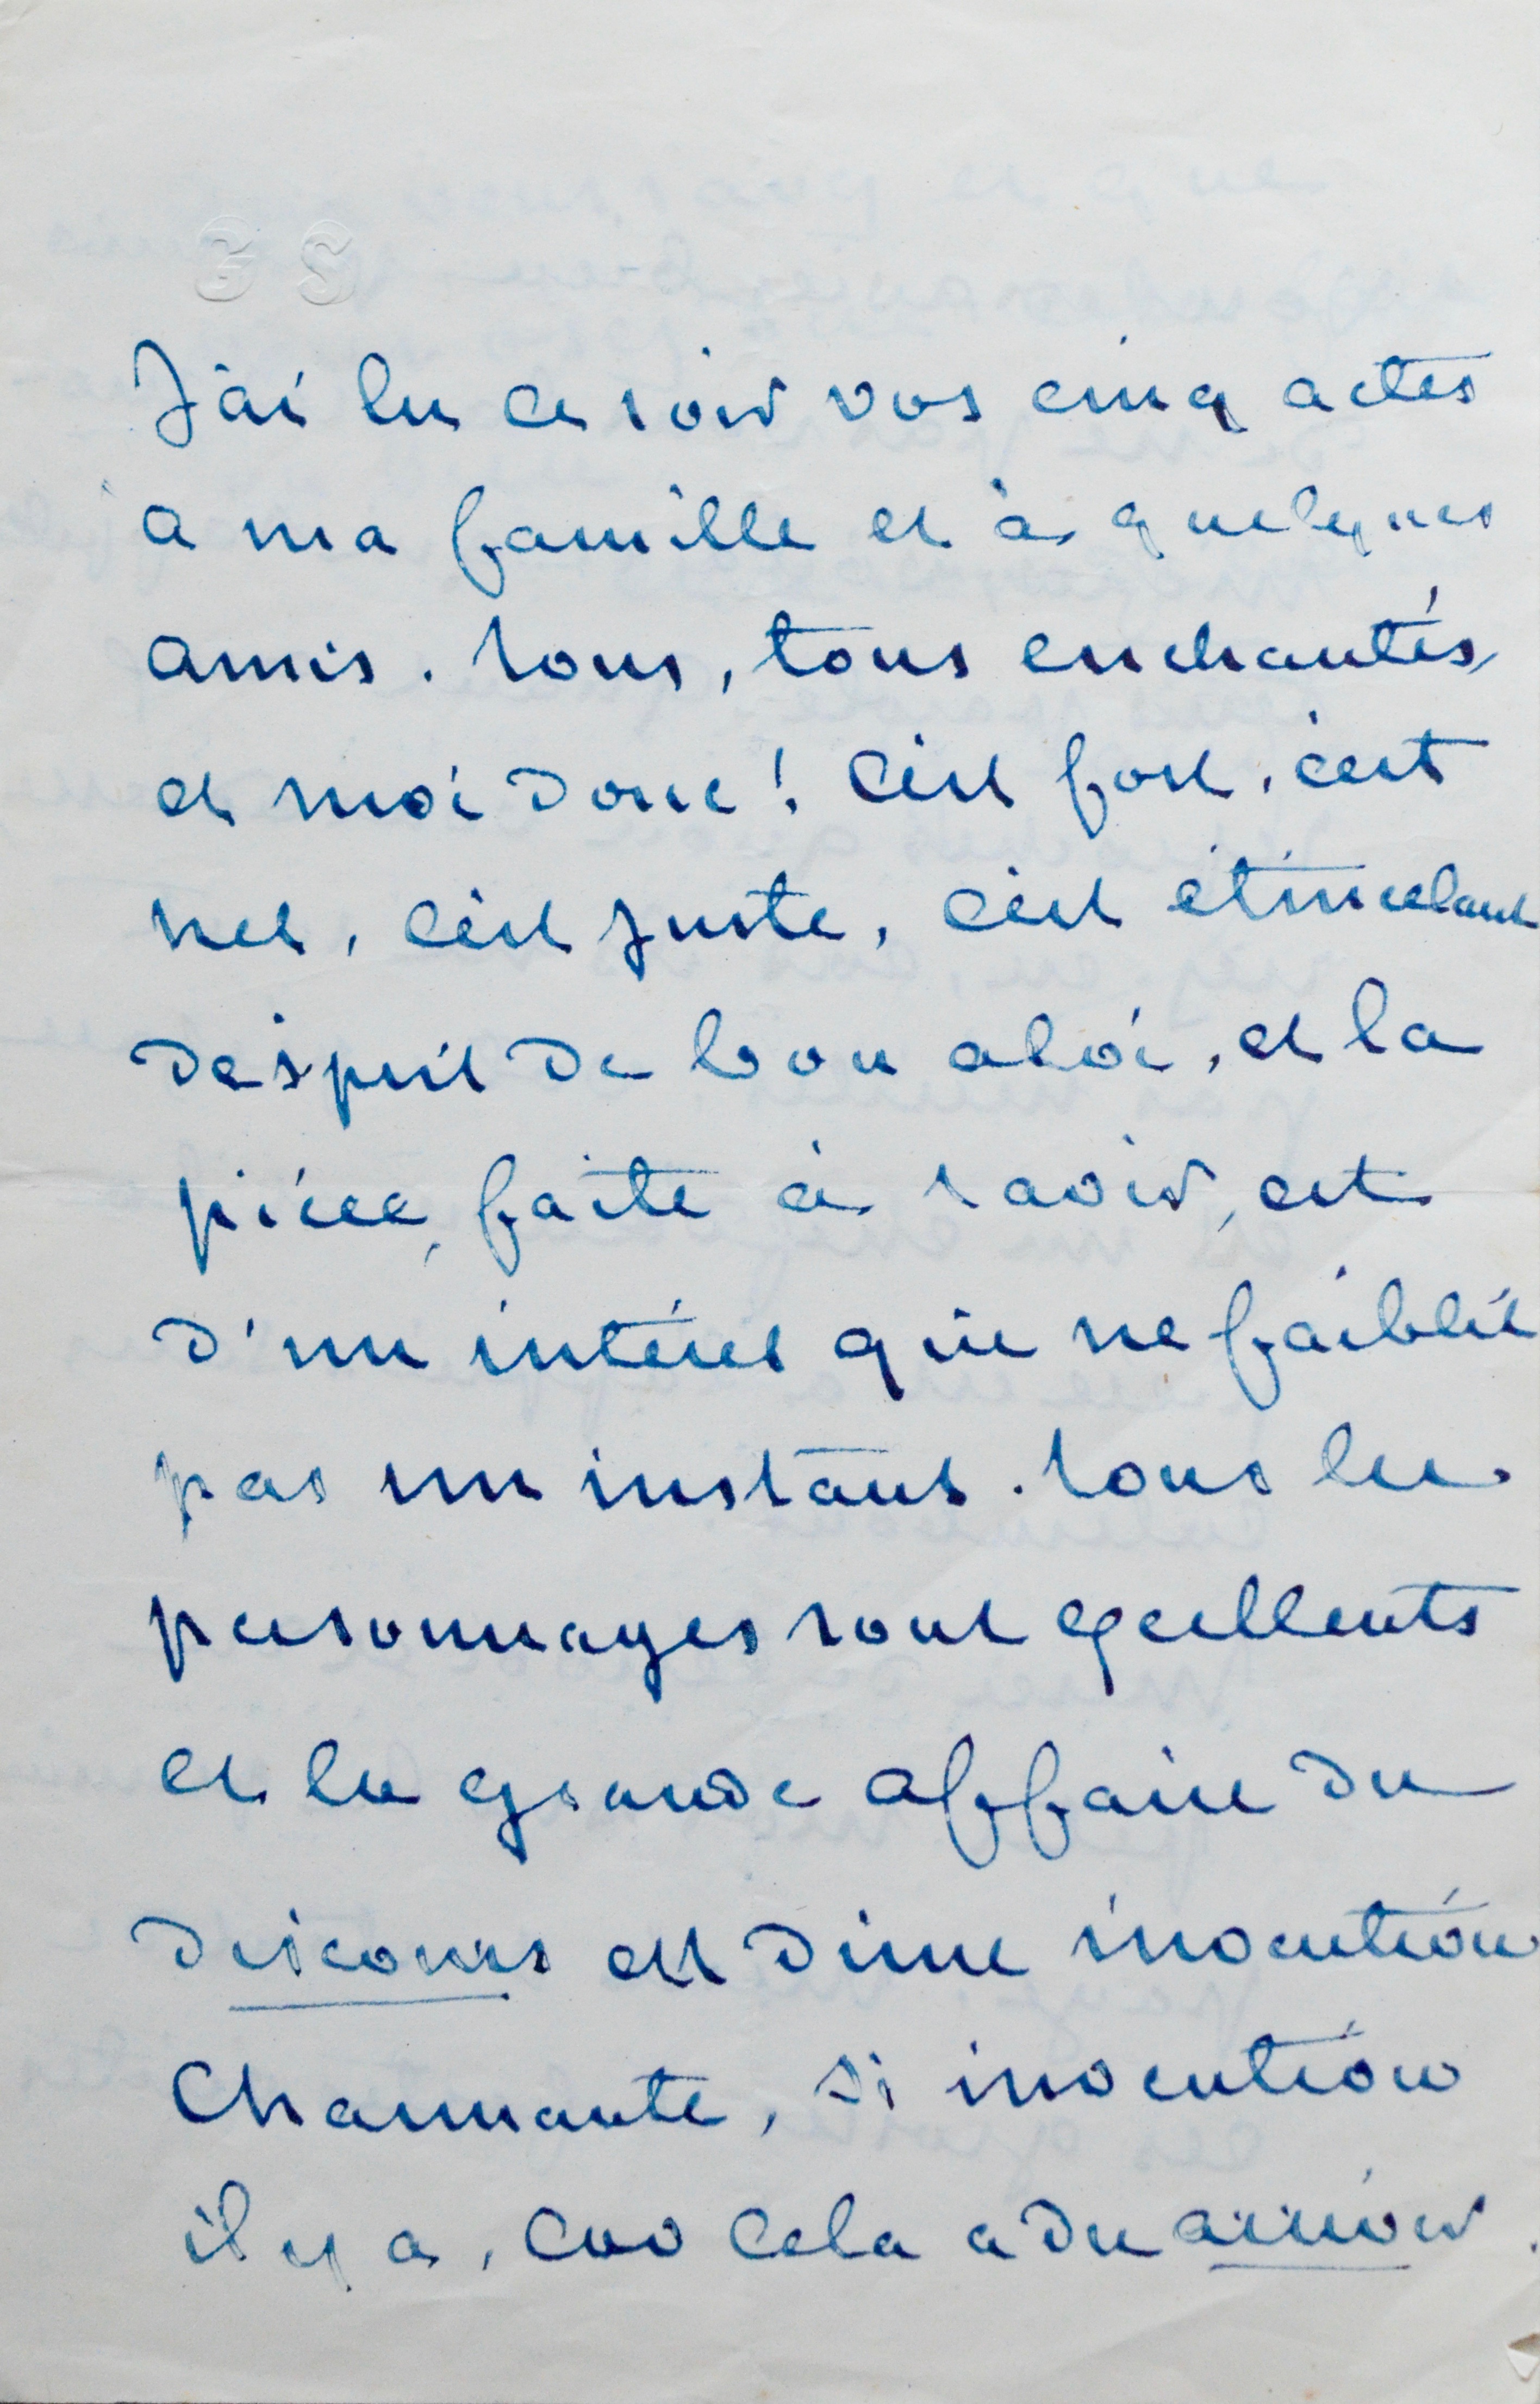 J'ai lu ce soir vos cinq actes
à ma famille et à quelques
amis. Tous, tous enchantés,
et moi donc! C'est fort, c'est
net, c'est juste, c'est étincelant
d'esprit de bon aloi, et la
pièce, faite à ravir, est
d'un intérêt qui ne faiblit
pas un instant. Tous les
personnages sont excellents
et la grande affaire du
discours est d'une invention
charmante, si invention
il y a, car cela a du arriver.